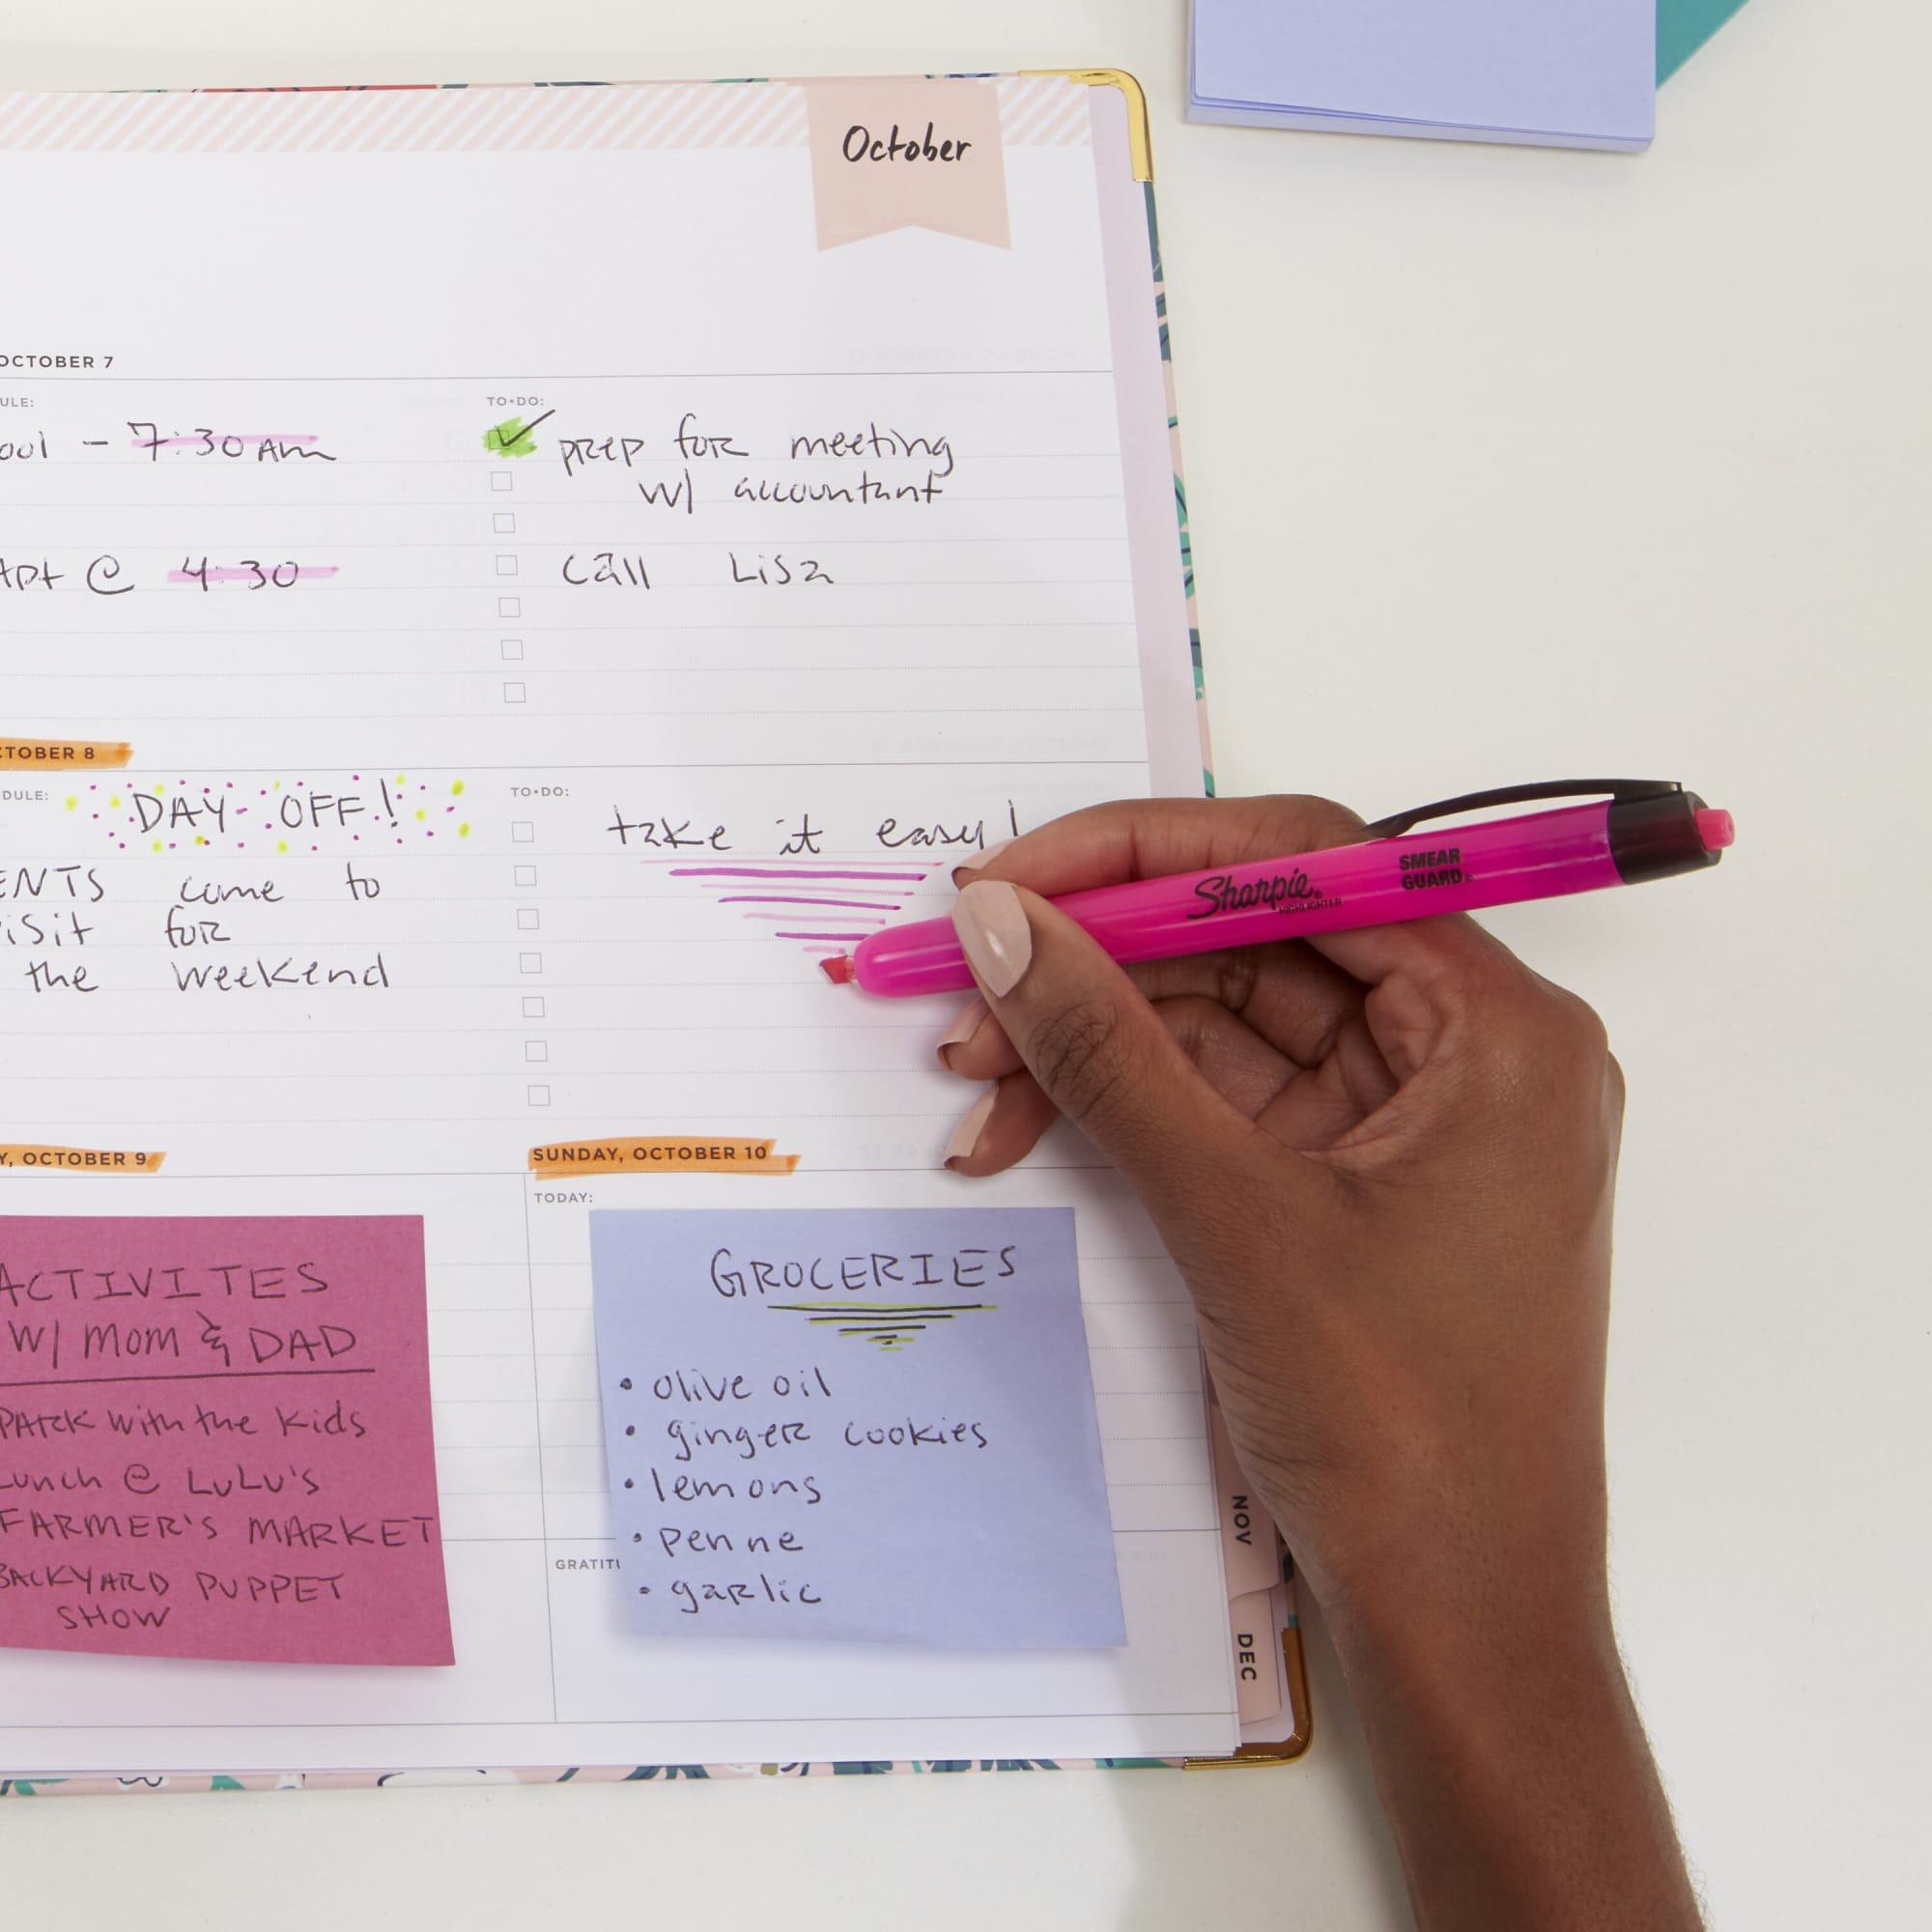 October
OCTOBER 7
ULE:
ool - 7:30 Am
Apt @ 4:30
TO•DO:
prep for meeting
w/ accountant
call Lisa
CTOBER 8
DULE:
DAY OFF!
ENTS come to
isit for
the weekend
TO•DO:
take it easy!
Sharpie
HIGHLIGHTER
SMEAR
GUARD
Y, OCTOBER 9
ACTIVITES
W/ MOM & DAD
PARK with the kids
Lunch @ LuLu's
FARMER'S MARKET
BACKYARD PUPPET
SHOW
SUNDAY, OCTOBER 10
TODAY:
GROCERIES
• olive oil
• ginger cookies
• lemons
• penne
• garlic
GRATIT
NOV
DEC